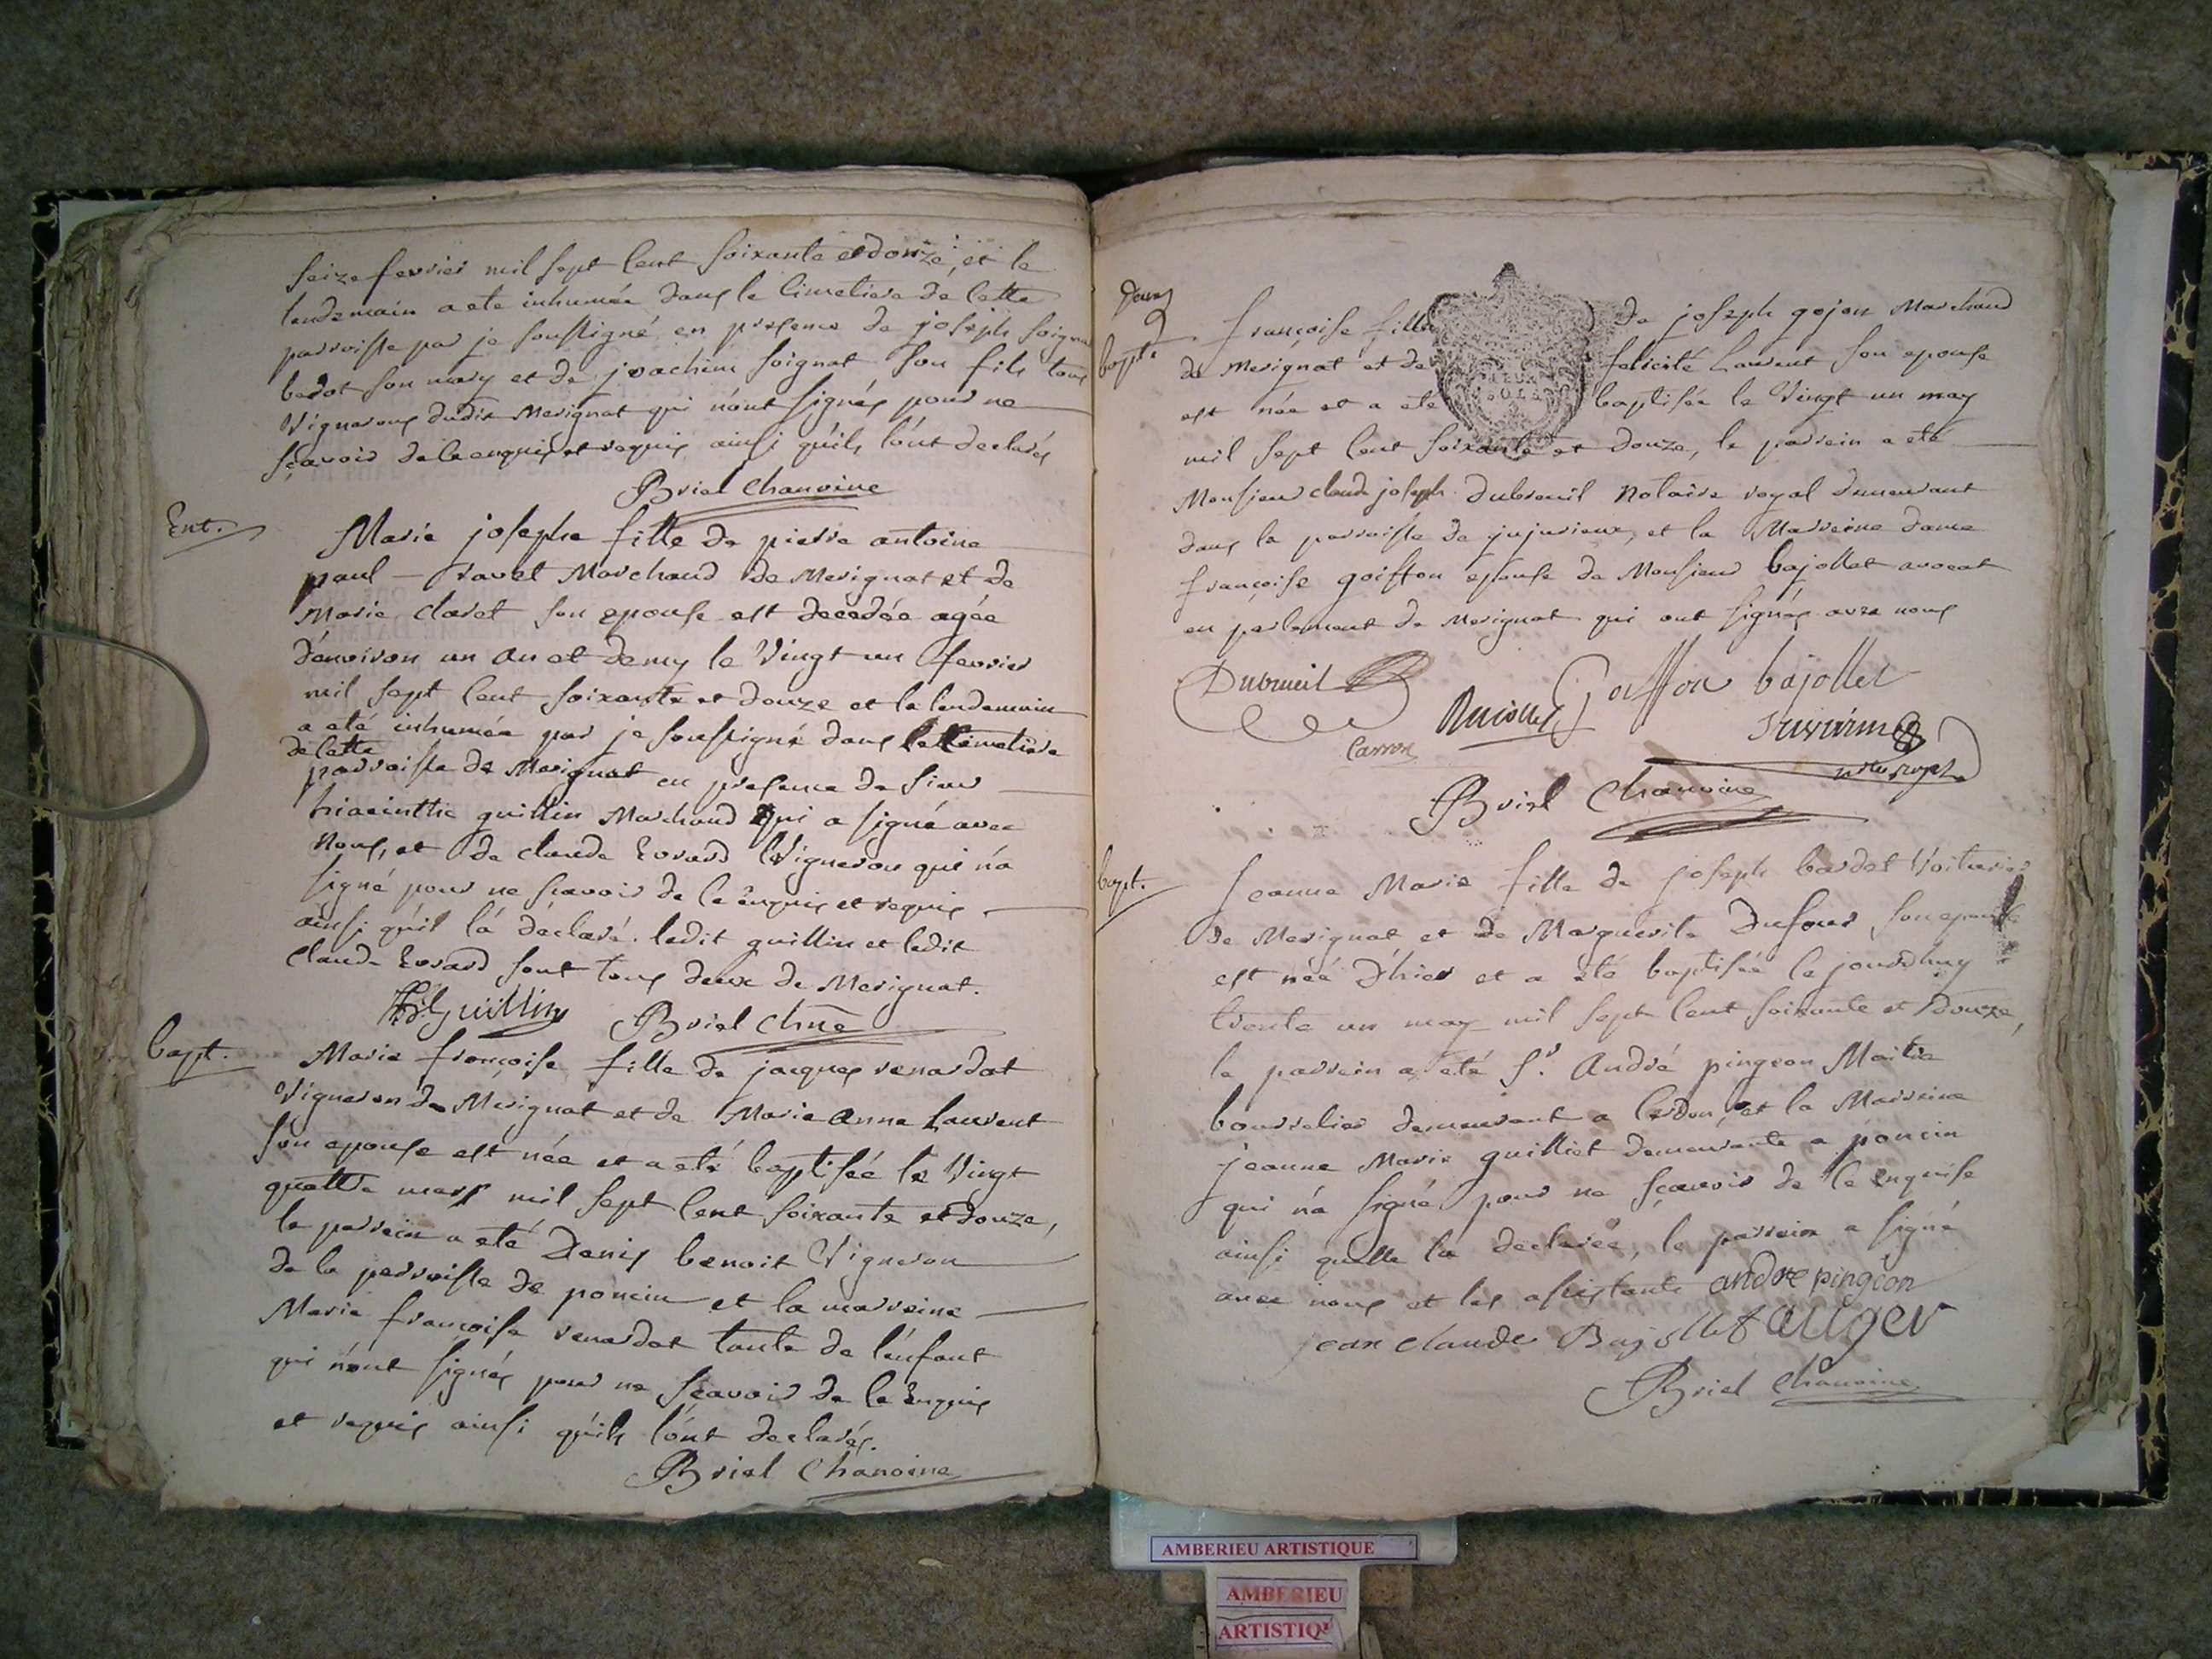 seize fevrier mil sept cent soixante et douze, et le
lendemain a eté inhumée dans le cimetiere de cette
parroisse par je soussigné en presence de joseph soignat
badot son mary et de joachim soignat son fils tous
vignerons dudit Merignat qui n'ont signés pour ne
sçavoir de ce enquis et requis ainsi qu'ils l'ont declarés
Briel Chanoine
Ent.
Marie josephe fille de pierre antoine
paul — ravet Marchand de Merignat et de
Marie claret son epouse est decedée agée
d'environ un an et demy le vingt un fevrier
mil sept cent soixante et douze et le lendemain
a eté inhumée par je soussigné dans le cimetiere
de cette
parroisse de Merignat en presence de sieur
hiacinthe guillin Marchand qui a signé avec
nous, et de claude Evrard vigneron qui n'a
signé pour ne scavoir de ce enquis et requis
ainsi qu'il l'a déclaré. ledit guillin et ledit
claude Evrard sont tous deux de Merignat.
Guillin Briel Chne
bapt.
Marie françoise fille de jacques renardat
vigneron de Merignat et de Marie anne Laurent
son epouse est née et a eté baptisée le vingt
quattre mars mil sept cent soixante et douze,
le parrein a eté Denis benoit vigneron
de la parroisse de poncin et la marreine
Marie françoise renardat tante de l'enfant
qui n'ont signés pour ne sçavoir de ce enquis
et requis ainsi qu'ils l'ont declarés.
Briel Chanoine
bapt.
françoise fille de joseph gojon Marchand
de Merignat et de felicité Laurent son epouse
est née et a eté baptisée le vingt un may
mil sept cent soixante et douze, le parrein a eté
Monsieur claude joseph Dubreuil Notaire royal demeurant
dans la parroisse de jujurieux, et la Marreine dame
françoise goiffon epouse de Monsieur bajollet avocat
en parlement de Merignat qui ont signés avec nous
Dubreuil
Goiffon bajollet
Carron
Briel Chanoine
bapt.
Jeanne Marie fille de joseph bardet voiturier
de Merignat et de Marguerite Dufour son epouse
est née d'hier et a eté baptisée le jourd'huy
trente un may mil sept cent soixante et douze,
le parrein a eté sr. André pingeon Maitre
bourrelier demeurant a cerdon, et la Marreine
jeanne Marie guilliet demeurante a poncin
qui n'a signé pour ne sçavoir de ce enquise
ainsi quelle l'a declarée, le parrein a signé
avec nous et les assistants andre pingeon
jean claude Bajollet auger
Briel Chanoine
AMBERIEU ARTISTIQUE
AMBERIEU
ARTISTIQU